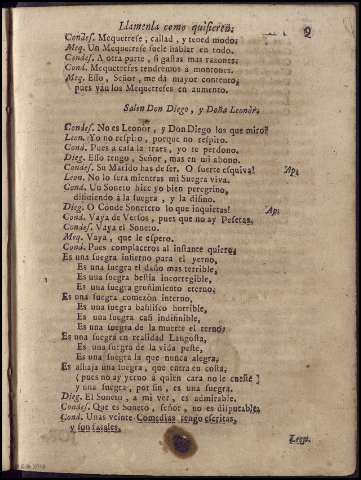 Llamenla como quisieren.
2
Condes. Mequetrefe, callad, y tened modo.
Meq. Un Mequetrefe suele hablar en todo.
Condes. A otra parte, si gastas mas razones.
Cond. Mequetrefes tendremos à montones.
Meq. Esso, Señor, me dà mayor contento,
pues vàn los Mequetrefes en aumento.
Salen Don Diego, y Doña Leonòr.
Condes. No es Leonòr, y Don Diego los que miro?
Leon. Yo no respiro, porque no respiro.
Cond. Pues à casa la traes, yo te perdono.
Dieg. Esso tengo, Señor, mas en mi abono.
Condes. Su Marido has de ser. O suerte esquiva! Ap.
Leon. No lo serà mientras mi Suegra viva.
Cond. Un Soneto hice yo bien peregrino,
difiniendo à la suegra, y la difino.
Dieg. O Conde Sonetero lo que inquietas! Ap.
Cond. Vaya de Versos, pues que no ay Pesetas.
Condes. Vaya el Soneto.
Meq. Vaya, que le espero.
Cond. Pues complaceros al instante quiero.
Es una suegra infierno para el yerno,
Es una suegra el daño mas terrible,
Es una suegra bestia incorregible,
Es una suegra gruñimiento eterno.
Es una suegra comezòn interno,
Es una suegra basilisco horrible,
Es una suegra casi indefinible,
Es una suegra de la muerte el terno.
Es una suegra en realidad Langosta,
Es una suegra de la vida peste,
Es una suegra la que nunca alegra,
Es alhaja una suegra, que entra en costa,
(pues no ay yerno à quien cara no le cueste)
y una suegra, por fin, es una suegra.
Dieg. El Soneto, à mi vèr, es admirable.
Condes. Que es Soneto, señor, no es disputable.
Cond. Unas veinte Comedias tengo escritas,
y son fatales.